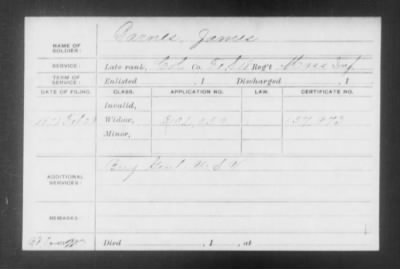 NAME OF SOLDIER: Barnes, James
SERVICE: Late rank, Col. Co. F. & S. Reg't Mass Inf
TERM OF SERVICE: Enlisted , 1 Discharged , 1
DATE OF FILING. CLASS. APPLICATION NO. LAW. CERTIFICATE NO.
Invalid,
Widow,
Minor,
ADDITIONAL SERVICES: Brig Genl U.S.V.
REMARKS:
Died , 1 , at